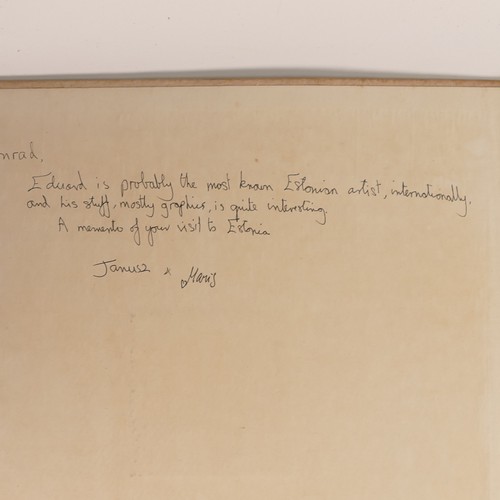 nrad,
Eduard is probably the most known Estonian artist, internationally.
and his stuff, mostly graphics, is quite interesting.
A memento of your visit to Estonia
Janusz & Maris